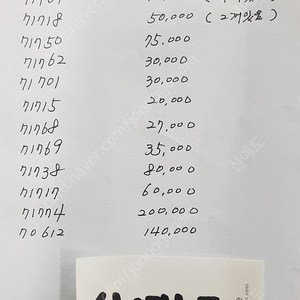 71718 50,000 (2개있음)
71750 75,000
71762 30,000
71701 30,000
71715 20,000
71768 27,000
71769 35,000
71738 80,000
71717 60,000
71774 200,000
70612 140,000